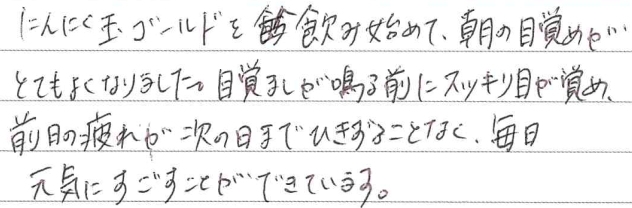 にんにく玉ゴールドを飲み始めて、朝の目覚めが
とてもよくなりました。目覚ましが鳴る前にスッキリ目が覚め、
前日の疲れが次の日までひきずることなく、毎日
元気にすごすことができています。